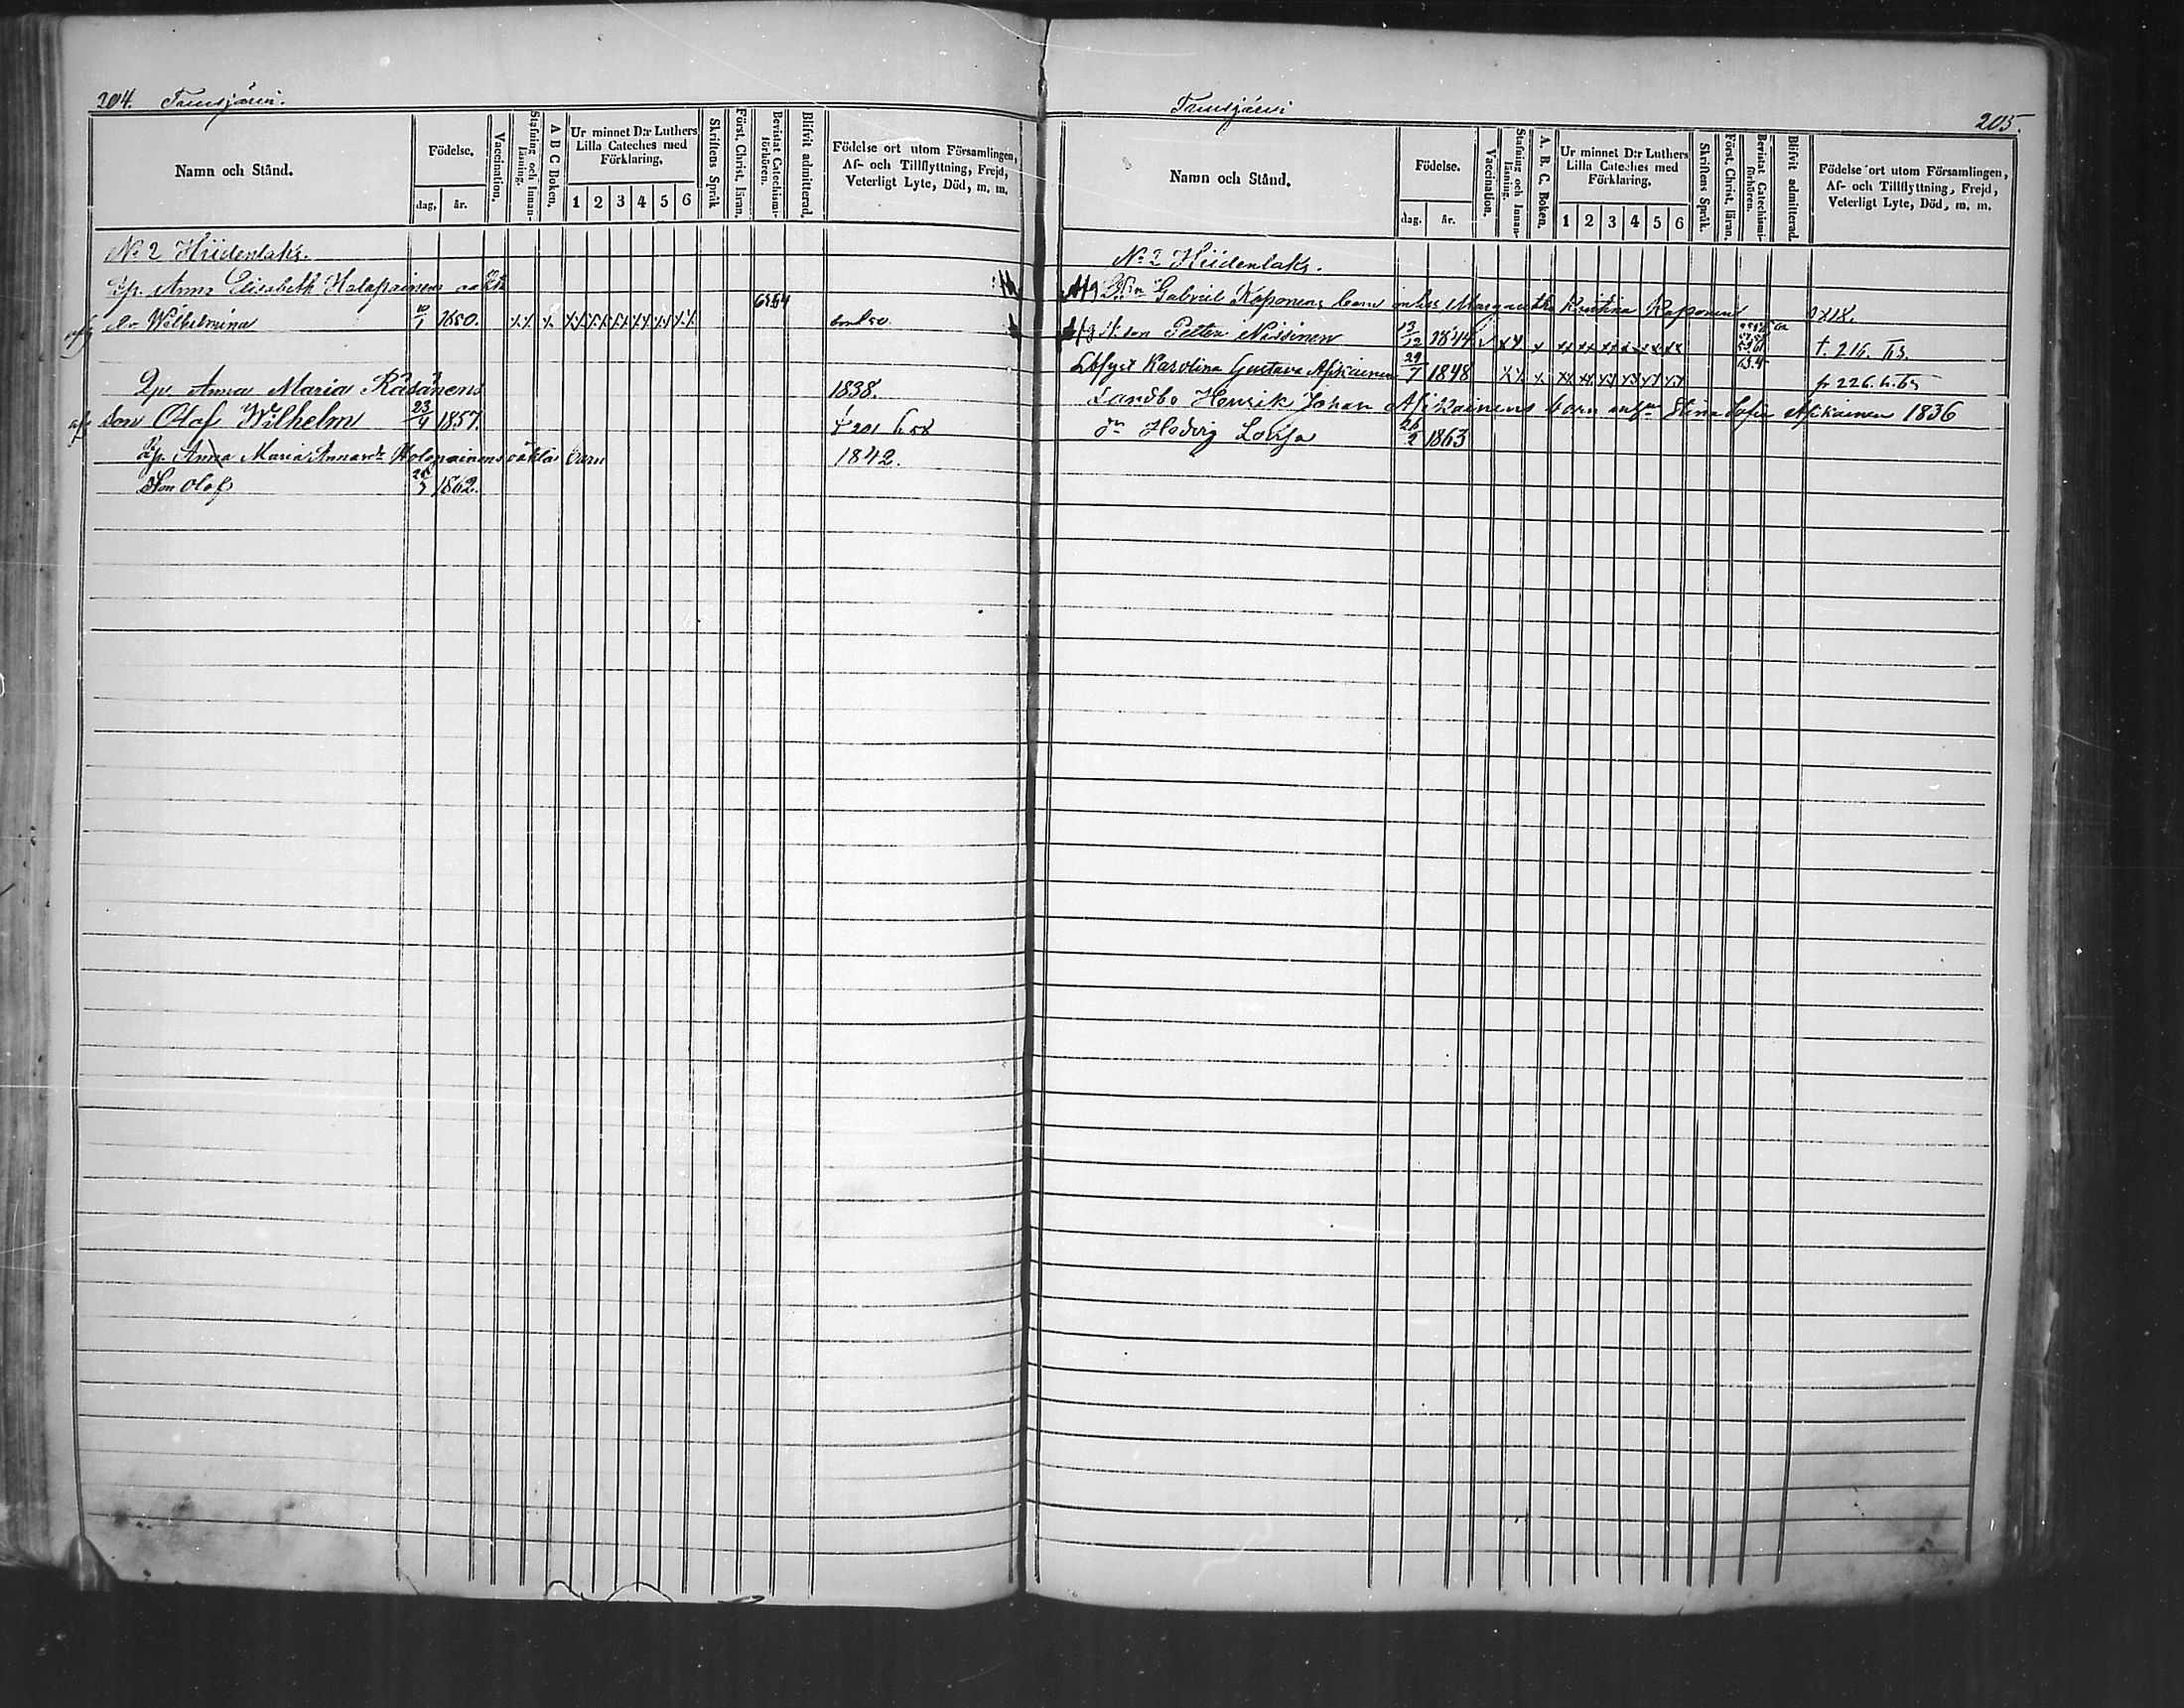 204. Tamsjärvi.
Namn och Stånd.
Födelse.
dag.
år.
Vaccination.
Stafning och Innanläsning.
A B C Boken.
Ur minnet D:r Luthers Lilla Cateches med Förklaring.
1 2 3 4 5 6
Skriftens Språk
Först. Christ. läran.
Bevistat Catechismiförhören.
Blifvit admitterad.
Födelse ort utom Församlingen,
Af- och Tillflyttning, Frejd,
Veterligt Lyte, Död, m. m.
No 2 Hiidenlaks.
Lp. Anna Elisabeth Holopainens
63.64
Dr Wilhelmina 10/1 1850.
Lp. Anna Maria Räsänens 1838.
Son Olof Wilhelm 23/4 1857.
Lp. Anna Maria Holopainens oäkta barn 1842.
Son Olof 1862.
Tamsjärvi
205.
Namn och Stånd.
Födelse.
dag.
år.
Vaccination.
Stafning och Innanläsning.
A. B. C. Boken.
Ur minnet D:r Luthers Lilla Cateches med Förklaring.
1 2 3 4 5 6
Skriftens Språk.
Först. Christ. läran.
Bevistat Catechismiförhören.
Blifvit admitterad.
Födelse ort utom Församlingen,
Af- och Tillflyttning, Frejd,
Veterligt Lyte, Död, m. m.
No 2 Hiidenlaks.
Gabriel Koponens barn Margaretha Kristina Koponen
son Petter Nissinen 13/12 1844 t. 216.
Karolina Gustava Asikainen 29/7 1848 fr 226.
Landbo Henrik Johan Asikainens barn Stina Sofia Asikainen 1836
Dr Hedvig Lovisa 26/2 1863